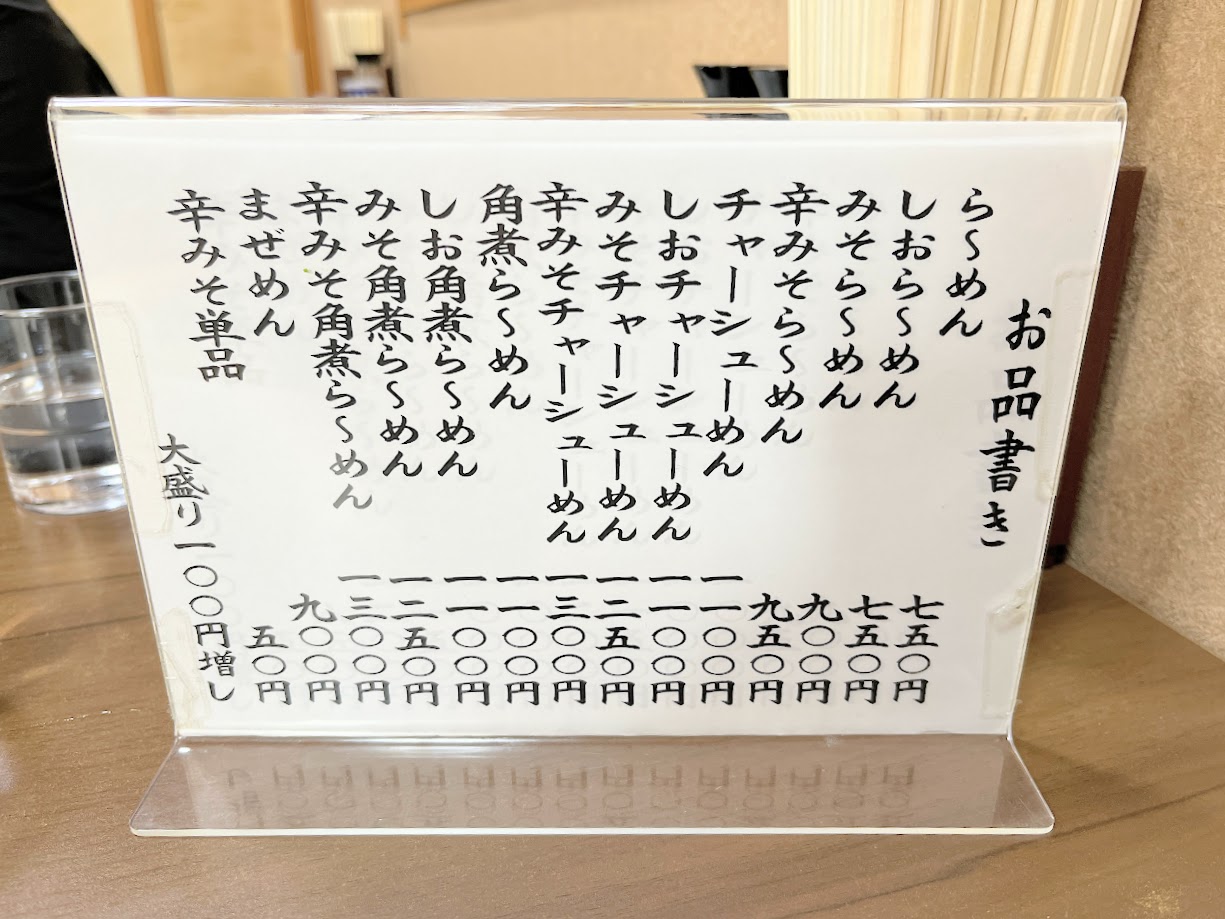 お品書き
ら〜めん 七五〇円
しおら〜めん 七五〇円
みそら〜めん 九〇〇円
辛みそら〜めん 九五〇円
チャーシューめん 一一〇〇円
しおチャーシューめん 一一〇〇円
みそチャーシューめん 一二五〇円
辛みそチャーシューめん 一三〇〇円
角煮ら〜めん 一一〇〇円
しお角煮ら〜めん 一一〇〇円
みそ角煮ら〜めん 一二五〇円
辛みそ角煮ら〜めん 一三〇〇円
まぜめん 九〇〇円
辛みそ単品 五〇円
大盛り一〇〇円増し